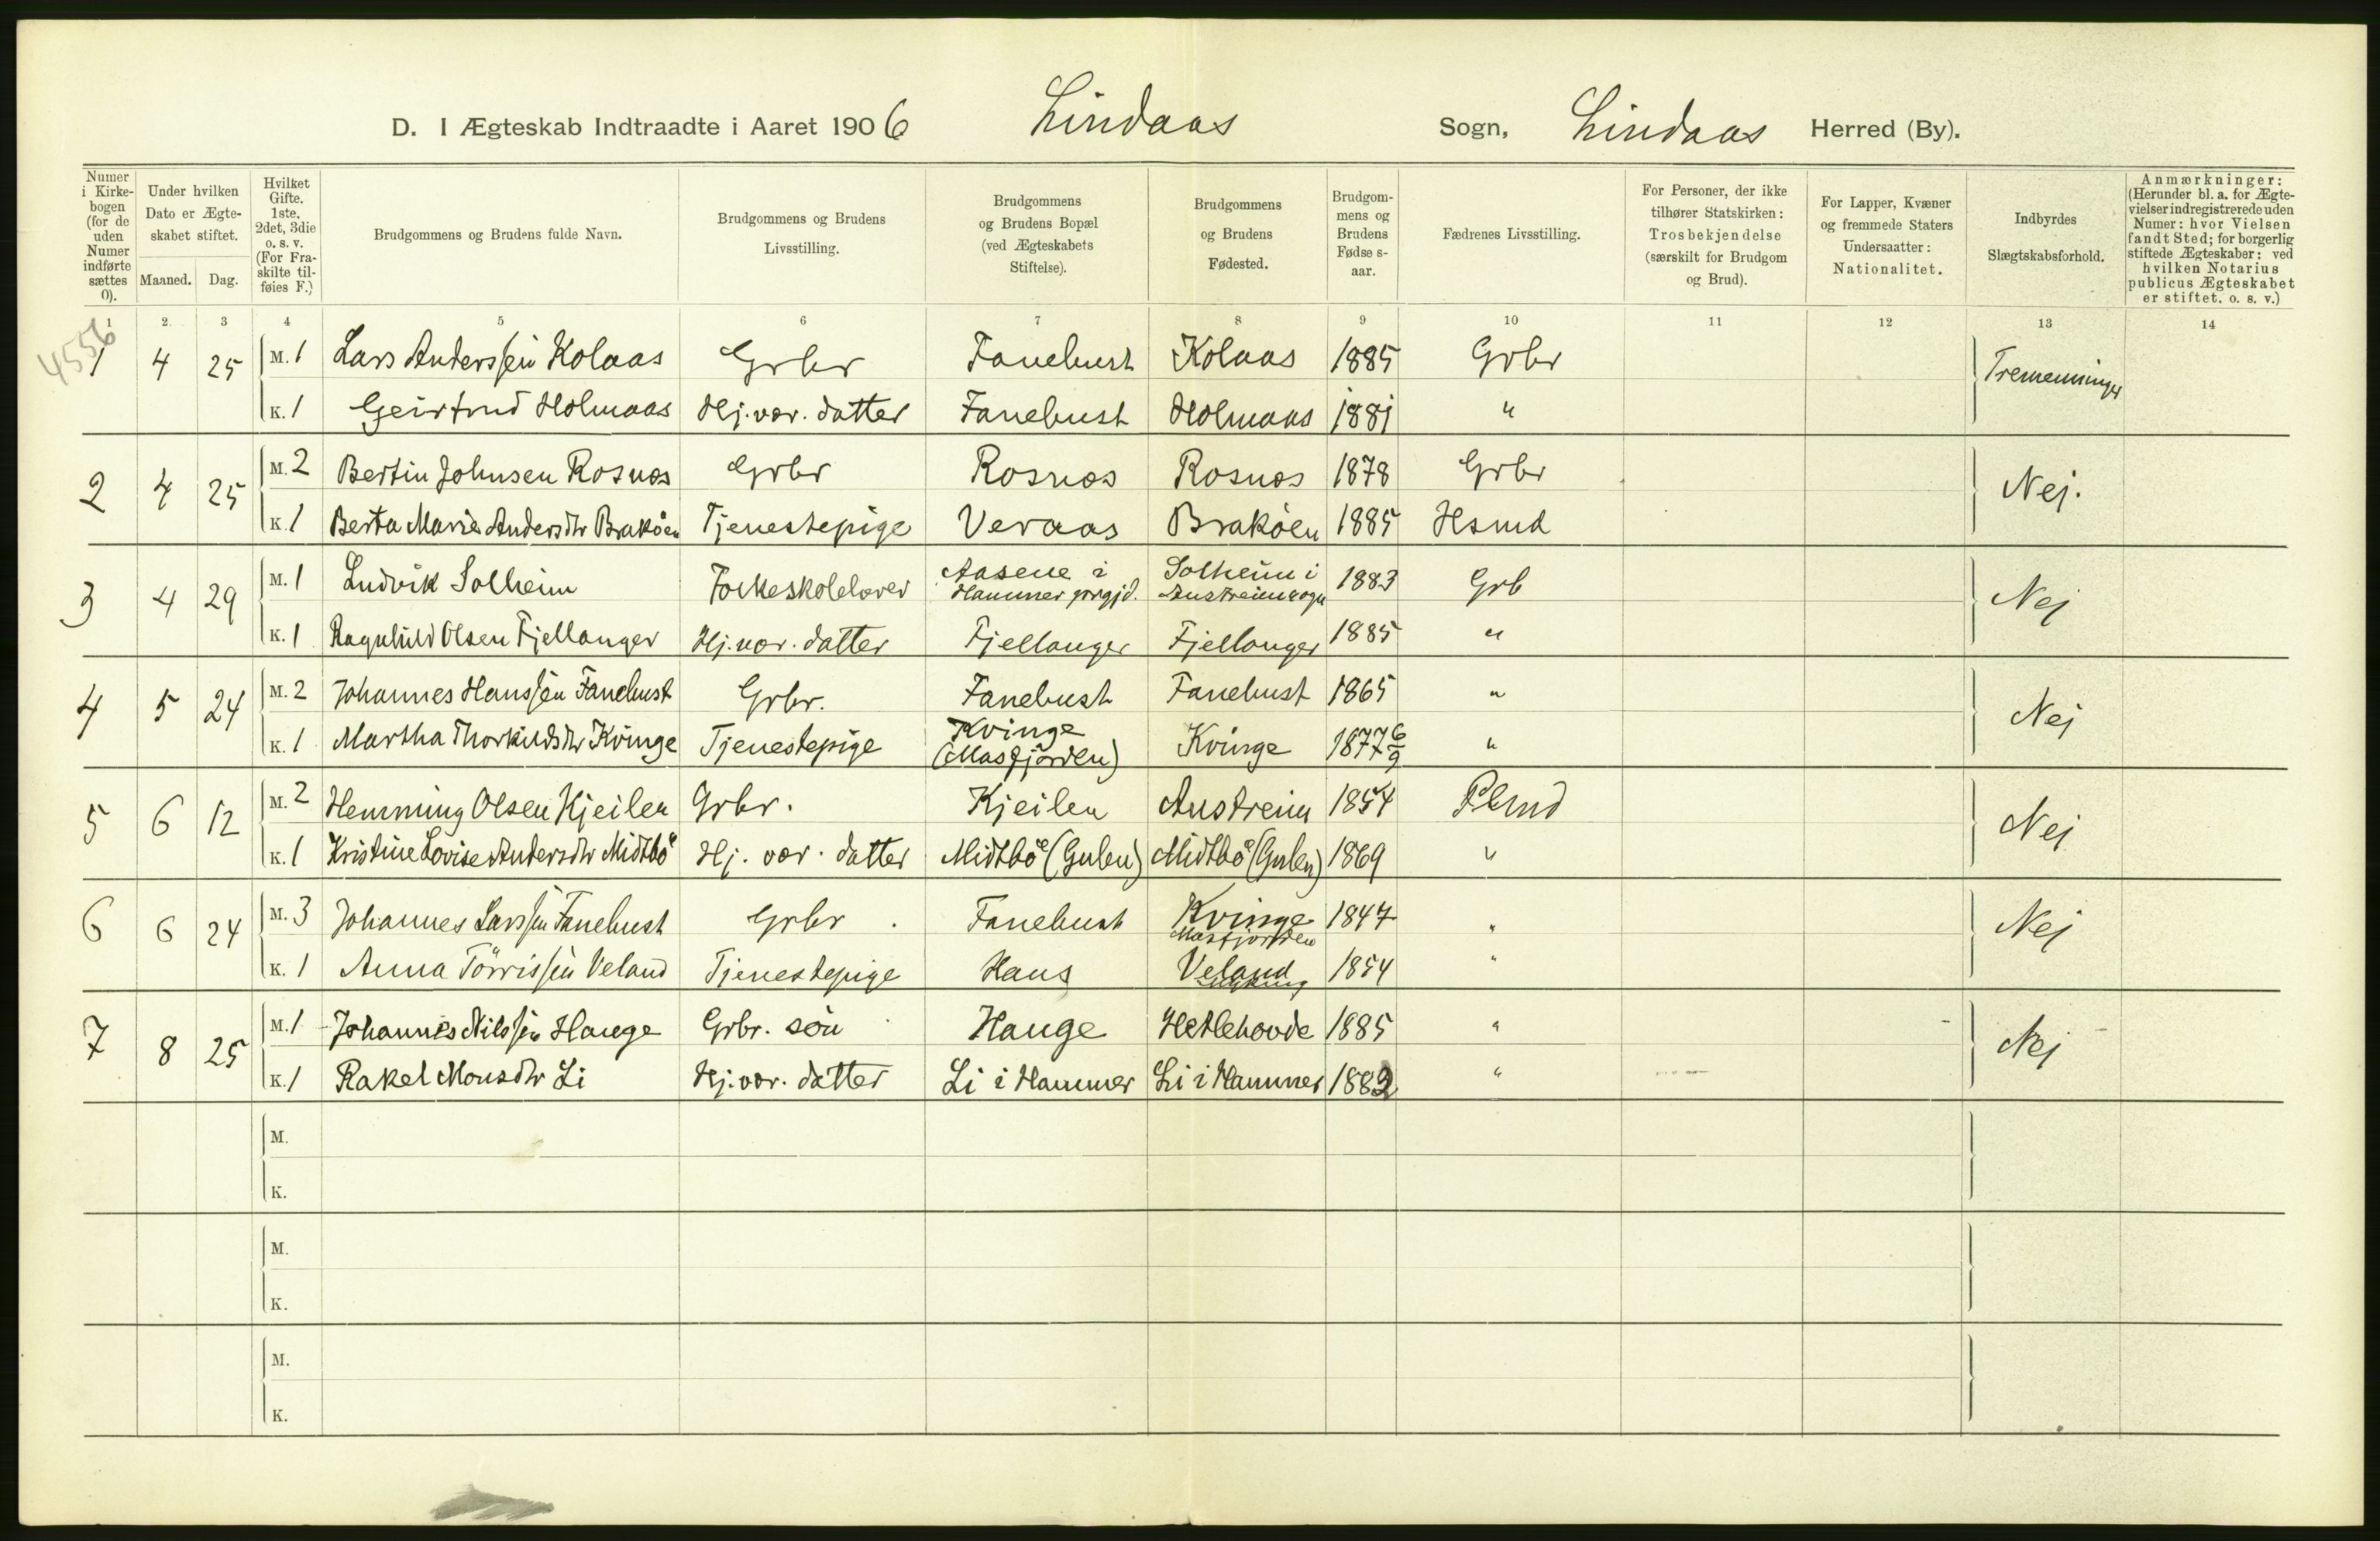 D. I Ægteskab Indtraadte i Aaret 1906 Lindaas Sogn, Lindaas Herred (By).
Numer i Kirkebogen (for de uden Numer indførte sættes 0).
Under hvilken Dato er Ægteskabet stiftet.
Maaned. Dag.
Hvilket Gifte. 1ste, 2det, 3die o. s. v. (For Fraskilte tilføies F.)
Brudgommens og Brudens fulde Navn.
Brudgommens og Brudens Livsstilling.
Brudgommens og Brudens Bopæl (ved Ægteskabets Stiftelse).
Brudgommens og Brudens Fødested.
Brudgommens og Brudens Fødselsaar.
Fædrenes Livsstilling.
For Personer, der ikke tilhører Statskirken: Trosbekjendelse (særskilt for Brudgom og Brud).
For Lapper, Kvæner og fremmede Staters Undersaatter: Nationalitet.
Indbyrdes Slægtskabsforhold.
Anmærkninger: (Herunder bl. a. for Ægtevielser indregistrerede uden Numer: hvor Vielsen fandt Sted; for borgerlig stiftede Ægteskaber: ved hvilken Notarius publicus Ægteskabet er stiftet. o. s. v.)
1 2 3 4 5 6 7 8 9 10 11 12 13 14
4556
1 4 25 M. 1 Lars Anderssen Kolaas Grbr Fanebust Kolaas 1885 Grbr Tremenninger
K. 1 Geirtrud Holmaas Hj. vær. datter Fanebust Holmaas 1881 "
2 4 25 M. 2 Bertin Johnsen Rosnæs Grbr Rosnæs Rosnæs 1878 Grbr Nej.
K. 1 Berta Marie Andersdtr Brakøen Tjenestepige Veraas Brakøen 1885 Hsmd
3 4 29 M. 1 Ludvik Solheim Folkeskolelærer Aasene i Hammer prgjd. Solheim i Austreim sogn 1883 Grb Nej
K. 1 Ragnhild Olsen Fjellanger Hj. vær. datter Fjellanger Fjellanger 1885 "
4 5 24 M. 2 Johannes Hanssen Fanebust Grbr. Fanebust Fanebust 1865 " Nej
K. 1 Martha Thorkildsdtr Kvinge Tjenestepige Kvinge (Masfjorden) Kvinge 1877 6/9 "
5 6 12 M. 2 Hemming Olsen Kjeilen Grbr. Kjeilen Austreim 1854 Plmd Nej
K. 1 Kristine Lovise Andersdtr Midtbø Hj. vær. datter Midtbø (Gulen) Midtbø (Gulen) 1869 "
6 6 24 M. 3 Johannes Larssen Fanebust Grbr. Fanebust Kvinge Masfjorden 1847 " Nej
K. 1 Anna Tørrissen Veland Tjenestepige Haus Veland 1854 "
7 8 25 M. 1 Johannes Nilssen Hauge Grbr. søn Hauge Hetlehovde 1885 " Nej
K. 1 Rakel Monsdtr Li Hj. vær. datter Li i Hammer Li i Hammer 1882 "
M.
K.
M.
K.
M.
K.